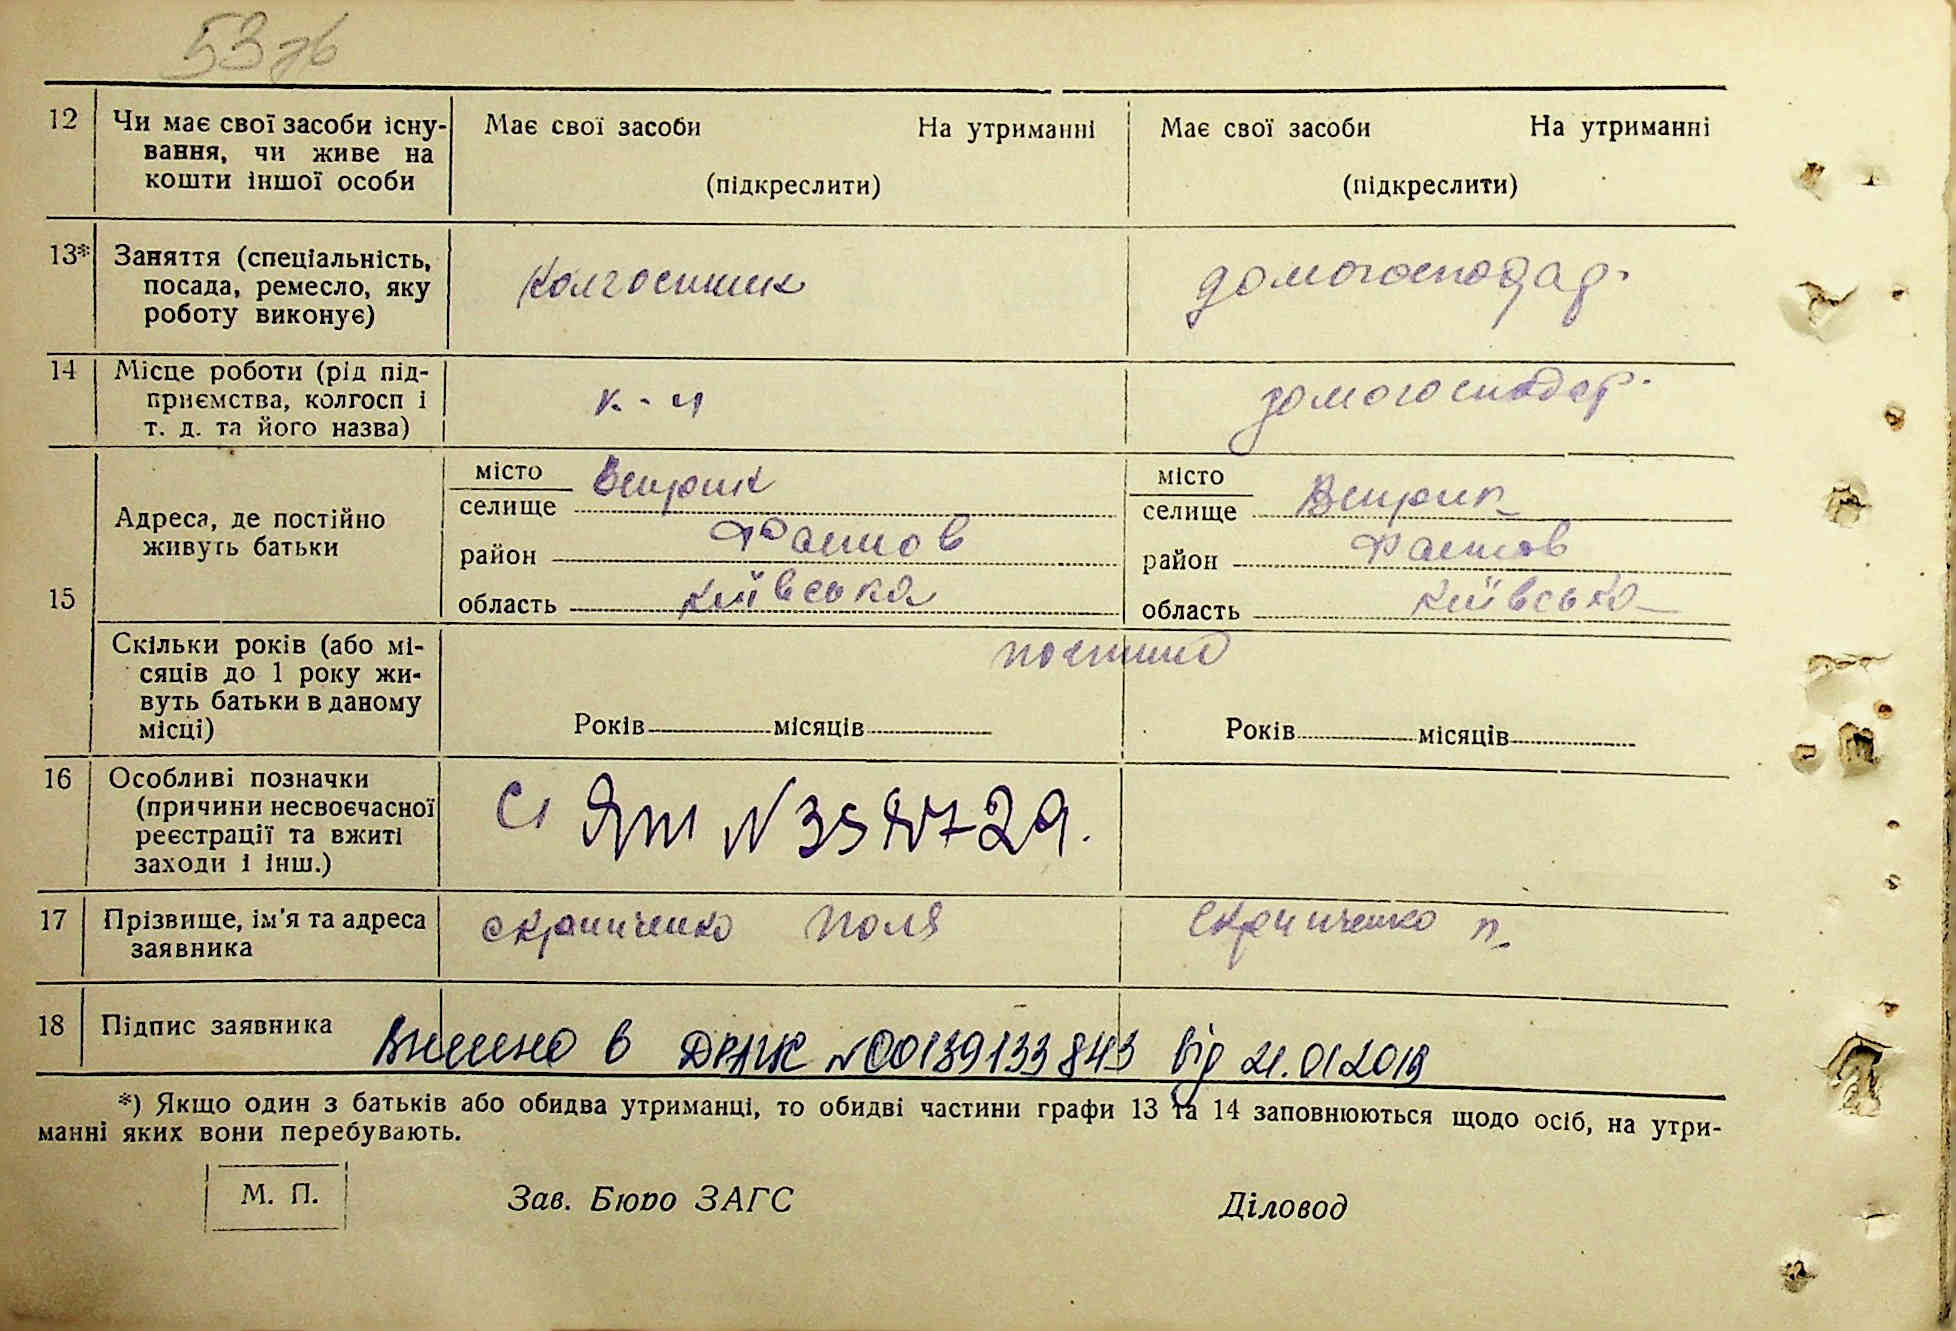 53 зв
12 Чи має свої засоби існу- Має свої засоби На утриманні Має свої засоби На утриманні
вання, чи живе на
кошти іншої особи (підкреслити) (підкреслити)
13* Заняття (спеціальність, колгоспник домогосподар.
посада, ремесло, яку
роботу виконує)
14 Місце роботи (рід під- к-п домогосподар.
приємства, колгосп і
т. д. та його назва)
15 Адреса, де постійно
живуть батьки
місто
селище Веприк
район Фастов
область київська
місто
селище Веприк
район Фастов
область київська
Скільки років (або мі- постійно
сяців до 1 року жи-
вуть батьки в даному
місці) Років місяців Років місяців
16 Особливі позначки
(причини несвоєчасної
реєстрації та вжиті
заходи і інш.)
17 Прізвище, ім'я та адреса Скрипченко Поля Скрипченко П.
заявника
18 Підпис заявника
Внесено в ДРАЦС №00139133843 від 21.01.2019
*) Якщо один з батьків або обидва утриманці, то обидві частини графи 13 та 14 заповнюються щодо осіб, на утри-
манні яких вони перебувають.
М. П. Зав. Бюро ЗАГС Діловод